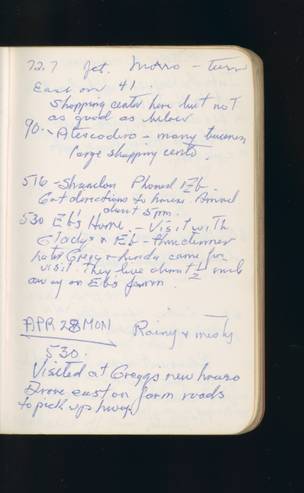 72.7 Jct. Morro - turn
East on 41.
Shopping center here but not
as good as below
90 - Atascadero - many
large shopping cents.
516 - Shandon Phoned Eb.
Got directions to house. Arrived
about 5pm.
530 Eb's Home. - Visit with
Gladys & Eb - thru dinner
later Gregg & Linda came for
visit. They live about 1/2 mile
away on Ebs farm.
APR 28 MON Rainy & misty
530.
Visited at Greggs new house
Drove east on farm roads
to pick up hiway